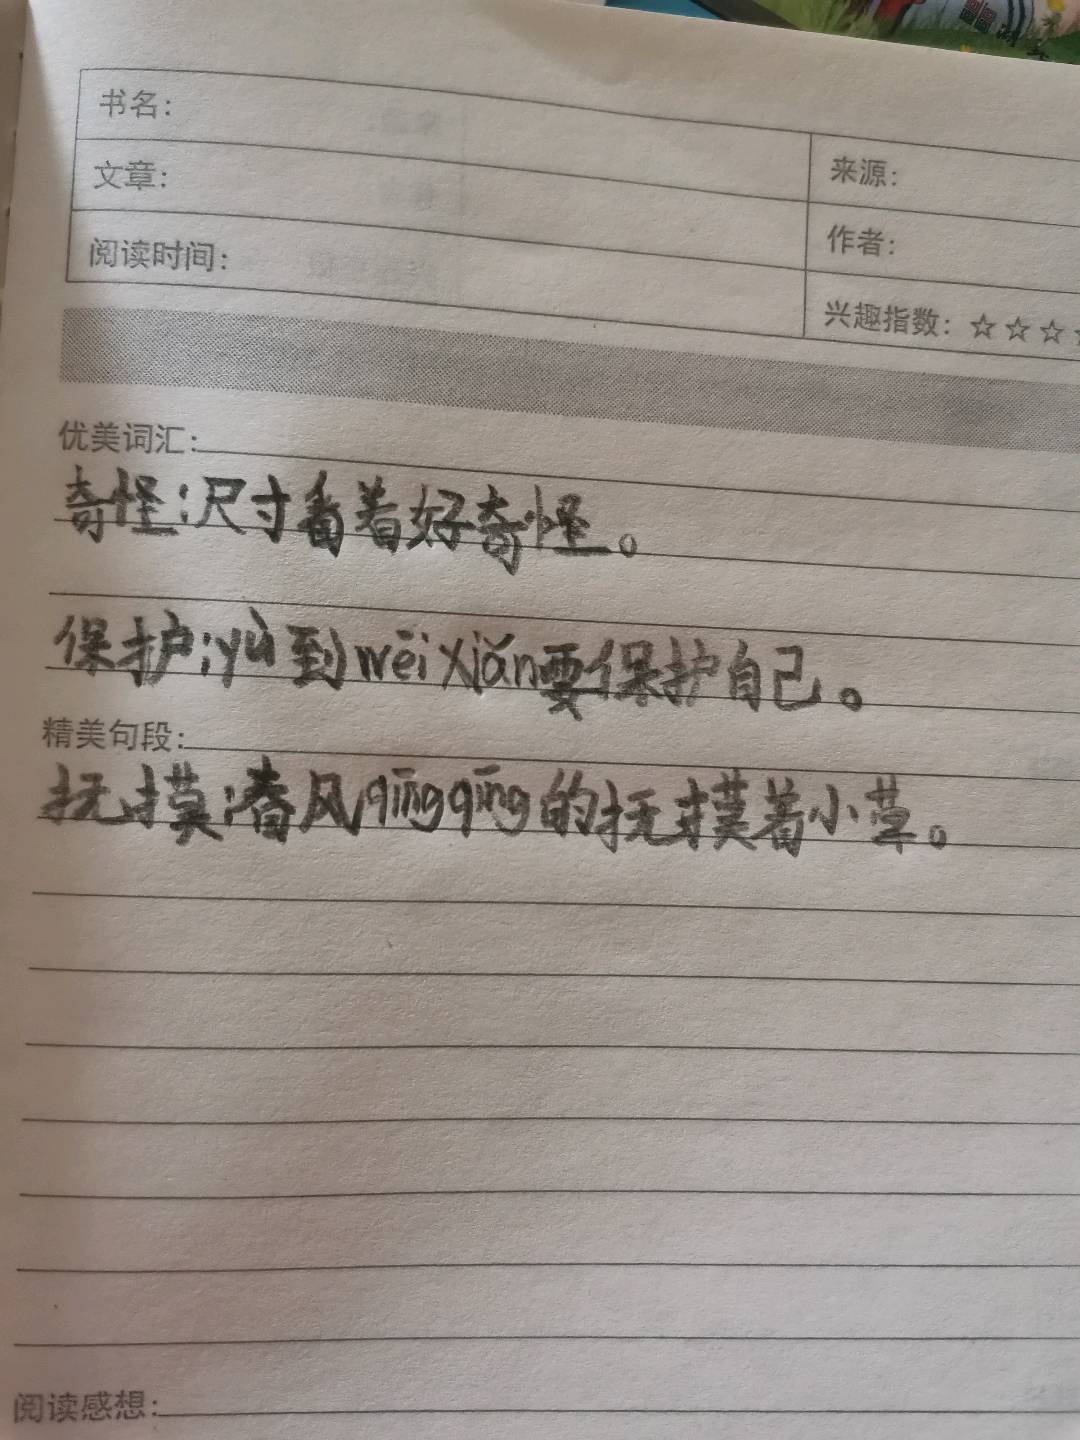 书名：
来源：
文章：
作者：
阅读时间：
兴趣指数：☆☆☆
优美词汇：
奇怪：尺寸看着好奇怪。
保护：yù到wēi xiǎn要保护自己。
精美句段：
抚摸：春风qīngqīng的抚摸着小草。
阅读感想：